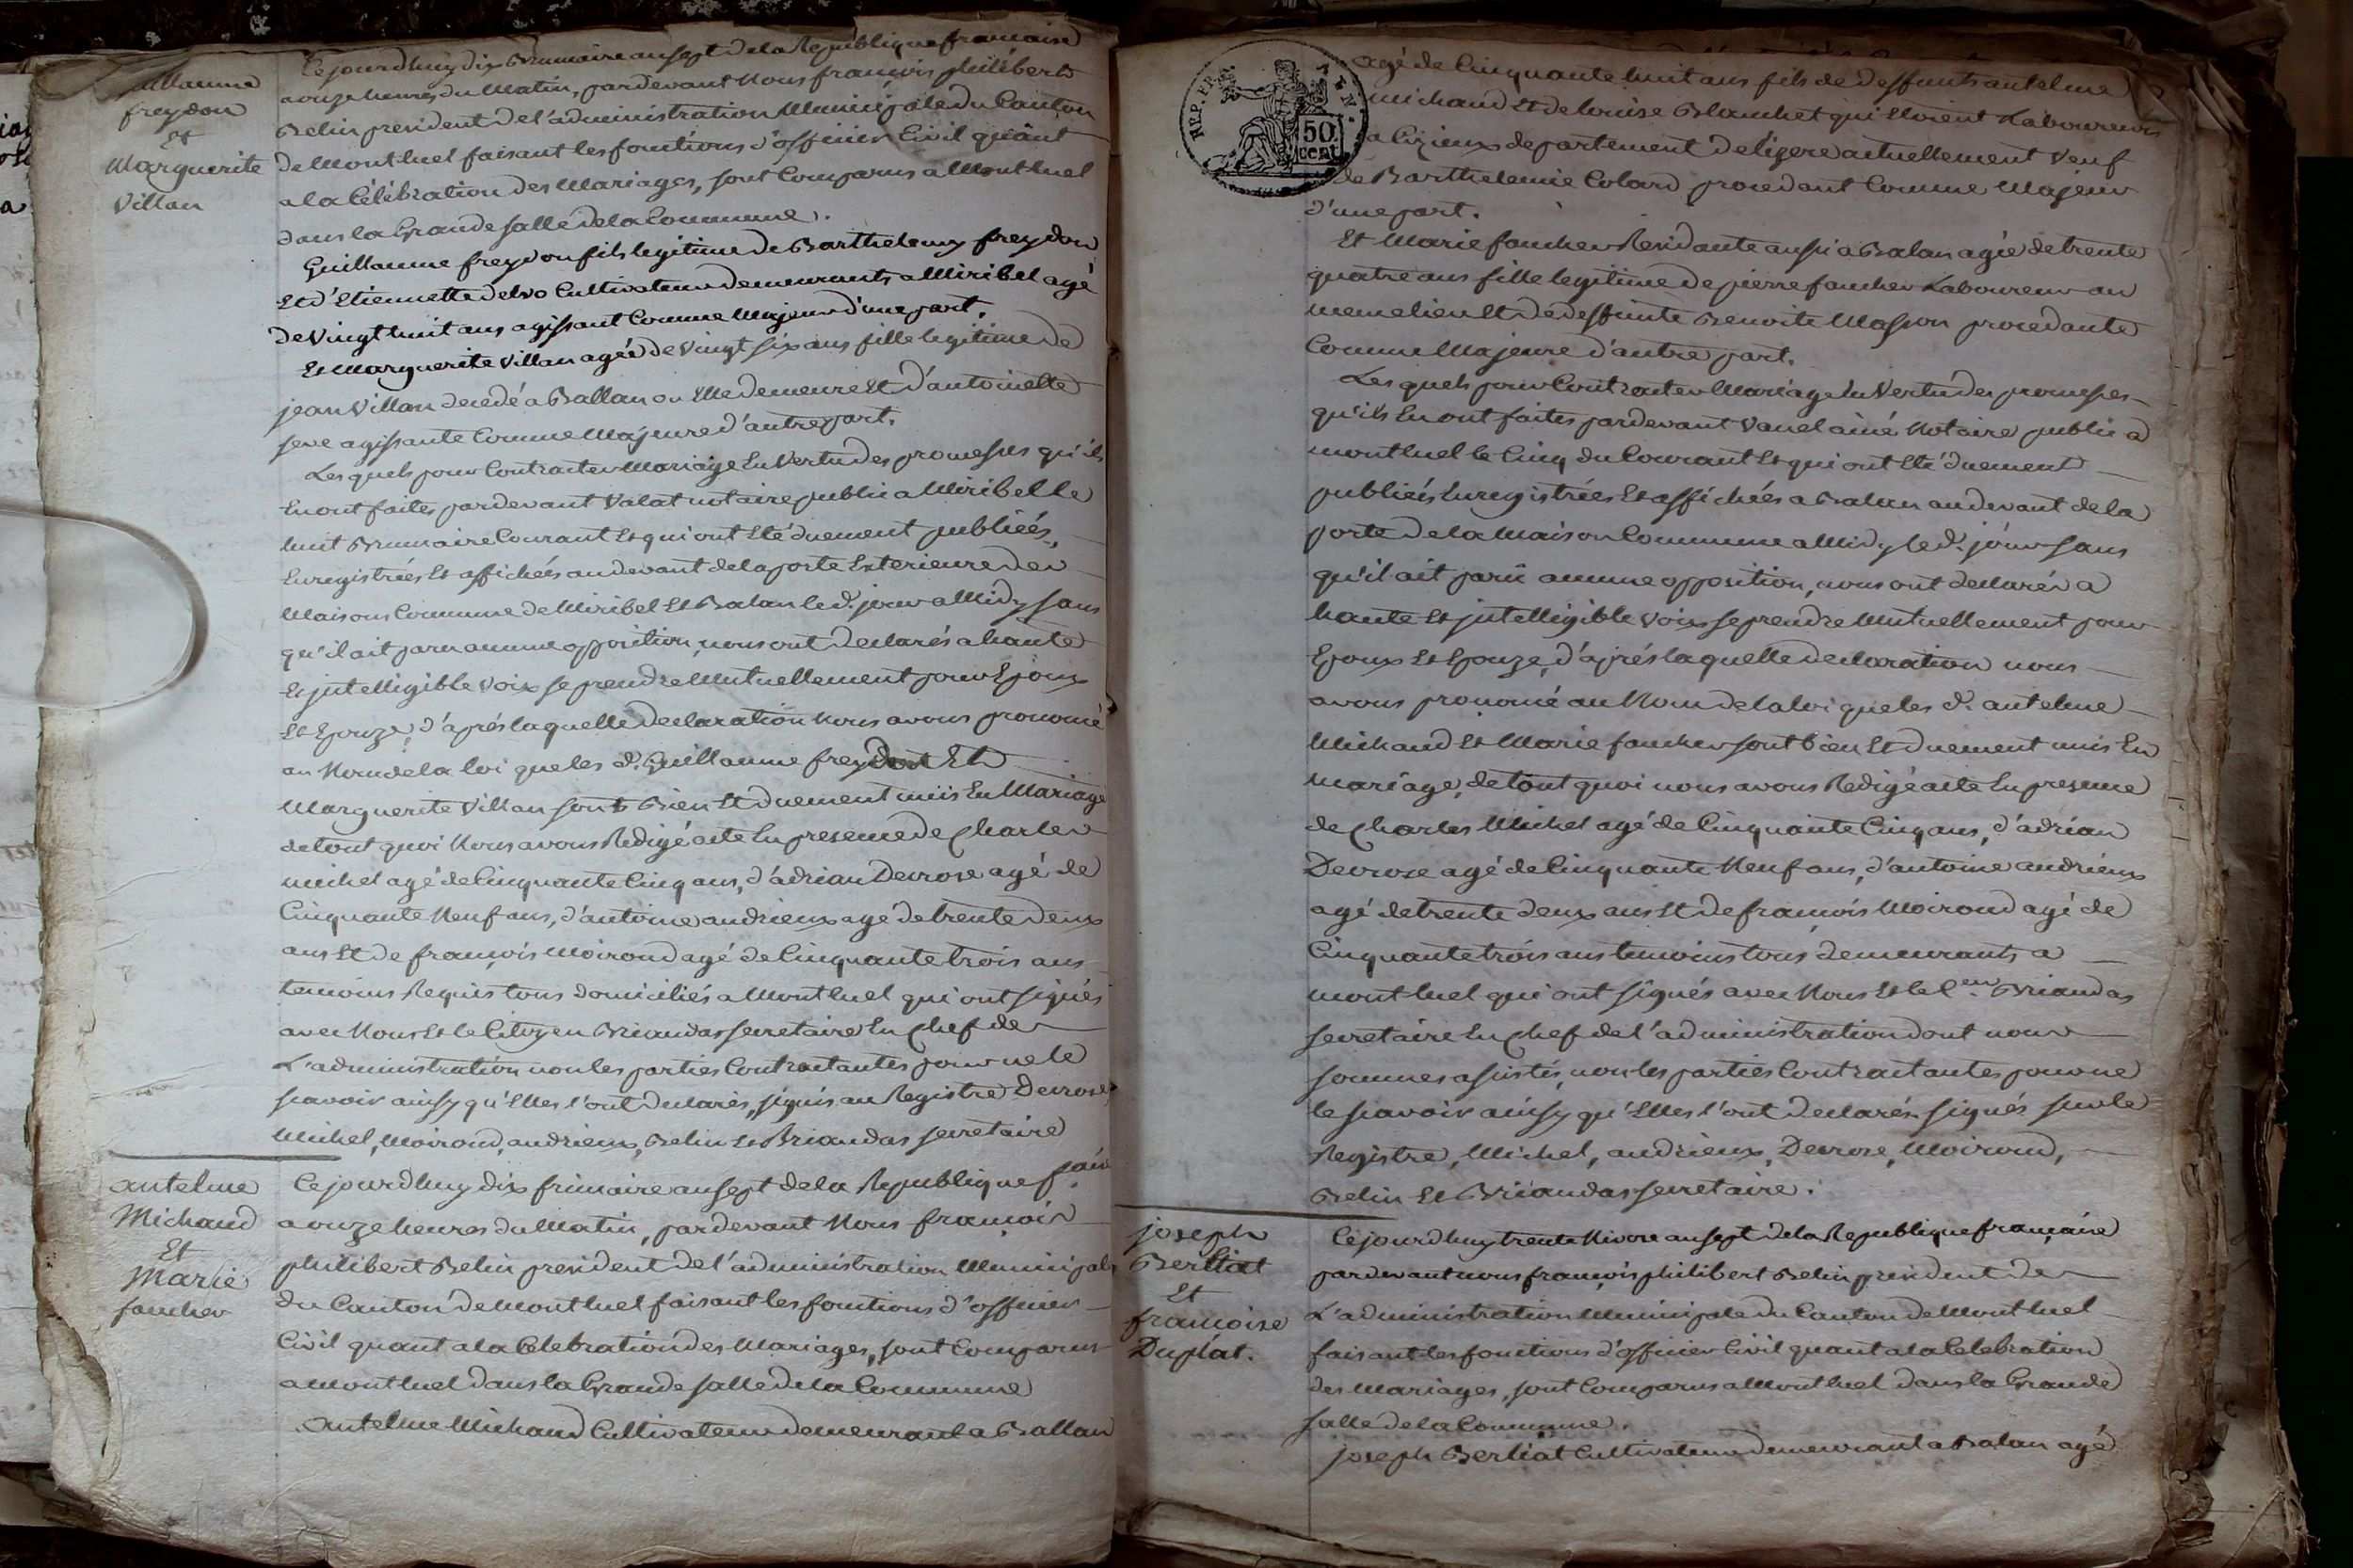 Guillaume
freydon
Et
Marguerite
Villan
Cejourdhuy dix Brumaire an sept de la Republique francaise
a onze heures du Matin, pardevant Nous francois philibert
Belin president de l'administration Municipale du Canton
de Montluel faisant les fonctions d'officier Civil quant
a la Célébration des Mariages, sont Comparus a Montluel
dans la Grande salle de la Commune.
Guillaume freydon fils legitime de Barthelemy freydon
Et d'Etiennette Cultivateurs demeurants a Miribel agé
de Vingt huit ans agissant Comme Majeur d'une part.
Et Marguerite Villan agée de Vingt six ans fille legitime de
jean Villan decedé a Ballan ou Elle demeure Et d'antoinette
seve agissante Comme Majeure d'autre part.
Les quels pour Contracter Mariage En Vertu des promesses qu'ils
En ont faites pardevant Valat notaire public a Miribel le
huit Brumaire Courant Et qui ont Eté duement publiées,
Enregistrées Et affichées au devant de la porte Exterieure des
Maisons Commune de Miribel Et Balan led. jour a Midy sans
qu'il ait paru aucune opposition, nous ont declarés a haute
Et jntelligible voix se prendre Mutuellement pour Epoux
Et Epouze, d'après laquelle declaration Nous avons prononcé
au Nom de la loi que les d. Guillaume freydon Et
Marguerite Villan sont Bien Et duement unis En Mariage
de tout quoi Nous avons Redigé acte En presence de Charles
michel agé de Cinquante Cinq ans, d'adrian Devrose agé de
Cinquante Neuf ans, d'antoine andrieux agé de trente deux
ans Et de francois Moiroud agé de Cinquante trois ans
temoins Requis tous domiciliés a Montluel qui ont signés
avec Nous Et le Citoyen Briandas secretaire En Chef de
L'administration non les parties Contractantes pour ne le
scavoir ainsy qu'Elles l'ont declarés, signés au Registre Devrose,
Michel, Moiroud, andrieux, Belin Et Briandas secretaire
antelme
Michaud
Et
Marie
faucher
Cejourdhuy dix frimaire an sept de la Republique f.aise
a onze heures du Matin, pardevant Nous francois
philibert Belin president de l'administration Municipale
du Canton de Montluel faisant les fonctions d'officier
Civil quant a la Celebration des Mariages, sont Comparus
a Montluel dans la Grande salle de la Commune
antelme Michaud Cultivateur demeurant a Ballan
REP. FRA.
50
cent
agé de Cinquante huit ans fils de deffunts antelme
michaud Et de Louise Blanchet qui Etoient Laboureurs
a departement de ligere actuellement Veuf
de Barthelemie Colard procedant Comme Majeur
d'une part.
Et Marie faucher Residante aussi a Balan agée de trente
quatre ans fille legitime de pierre faucher Laboureur au
meme lieu Et de deffunte Benoite Masson procedante
Comme Majeure d'autre part.
Les quels pour Contracter Mariage En Vertu des promesses
qu'ils En ont faites pardevant Vanel ainé Notaire public a
montluel le Cinq du Courant Et qui ont Eté duement
publiées Enregistrées Et affichées a Balan au devant de la
porte de la Maison Commune a Midy led. jour sans
qu'il ait parû aucune opposition, nous ont declarés a
haute Et jntelligible voix se prendre Mutuellement pour
Epoux Et Epouze, d'après laquelle declaration nous
avons prononcé au Nom de la loi que les d. antelme
Michaud Et Marie faucher sont bien Et duement unis En
mariage, de tout quoi nous avons Redigé acte En presence
de Charles Michel agé de Cinquante Cinq ans, d'adrian
Devrose agé de Cinquante Neuf ans, d'antoine andrieux
agé de trente deux ans Et de francois Moiroud agé de
Cinquante trois ans temoins tous demeurants a
montluel qui ont signés avec Nous Et le C.en Briandas
secretaire En Chef de l'administration dont nous
sommes assistés, non les parties Contractantes pour ne
le scavoir ainsy qu'Elles l'ont declarés signés sur le
Registre, Michel, andrieux, Devrose, Moiroud,
Belin Et Briandas secretaire.
joseph
Berliat
Et
francoise
Duplat.
Cejourdhuy trente Nivose an sept de la Republique francaise
pardevant nous francois philibert Belin president de
L'administration Municipale du Canton de Montluel
faisant les fonctions d'officier Civil quant a la Celebration
des Mariages, sont Comparus a Montluel dans la Grande
salle de la Commune.
joseph Berliat Cultivateur demeurant a Balan agé